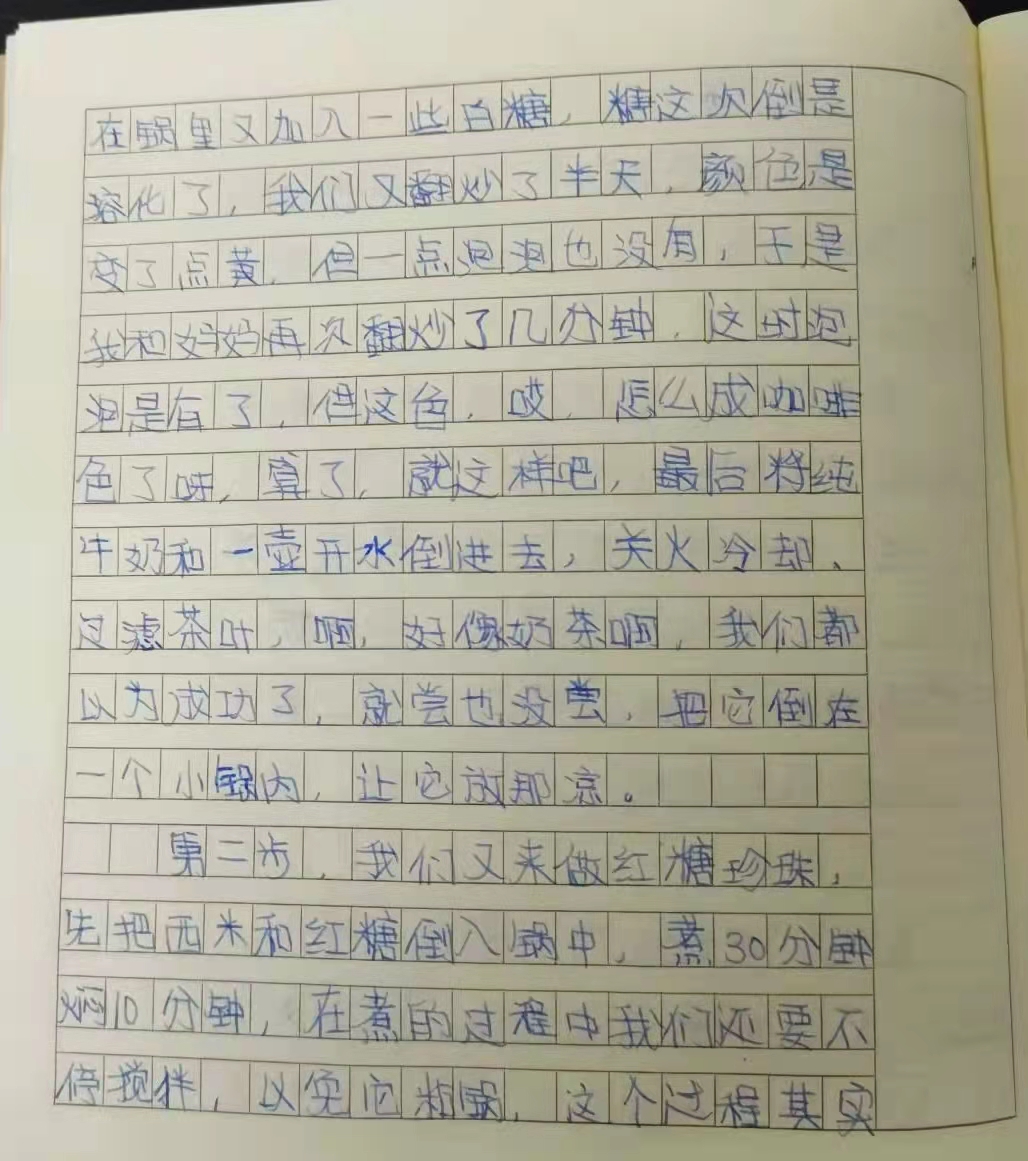 在锅里又加入一些白糖，糖这次倒是
溶化了，我们又翻炒了半天，颜色是
变了点黄，但一点泡泡也没有，于是
我和妈妈再次翻炒了几分钟，这时泡
泡是有了，但这色，哎，怎么成咖啡
色了呀，算了，就这样吧，最后将纯
牛奶和一壶开水倒进去，关火冷却、
过滤茶叶，啊，好像奶茶啊，我们都
以为成功了，就尝也没尝，把它倒在
一个小锅内，让它放那凉。
第二步，我们又来做红糖珍珠，
先把西米和红糖倒入锅中，煮30分钟
焖10分钟，在煮的过程中我们还要不
停搅拌，以免它粘锅，这个过程其实